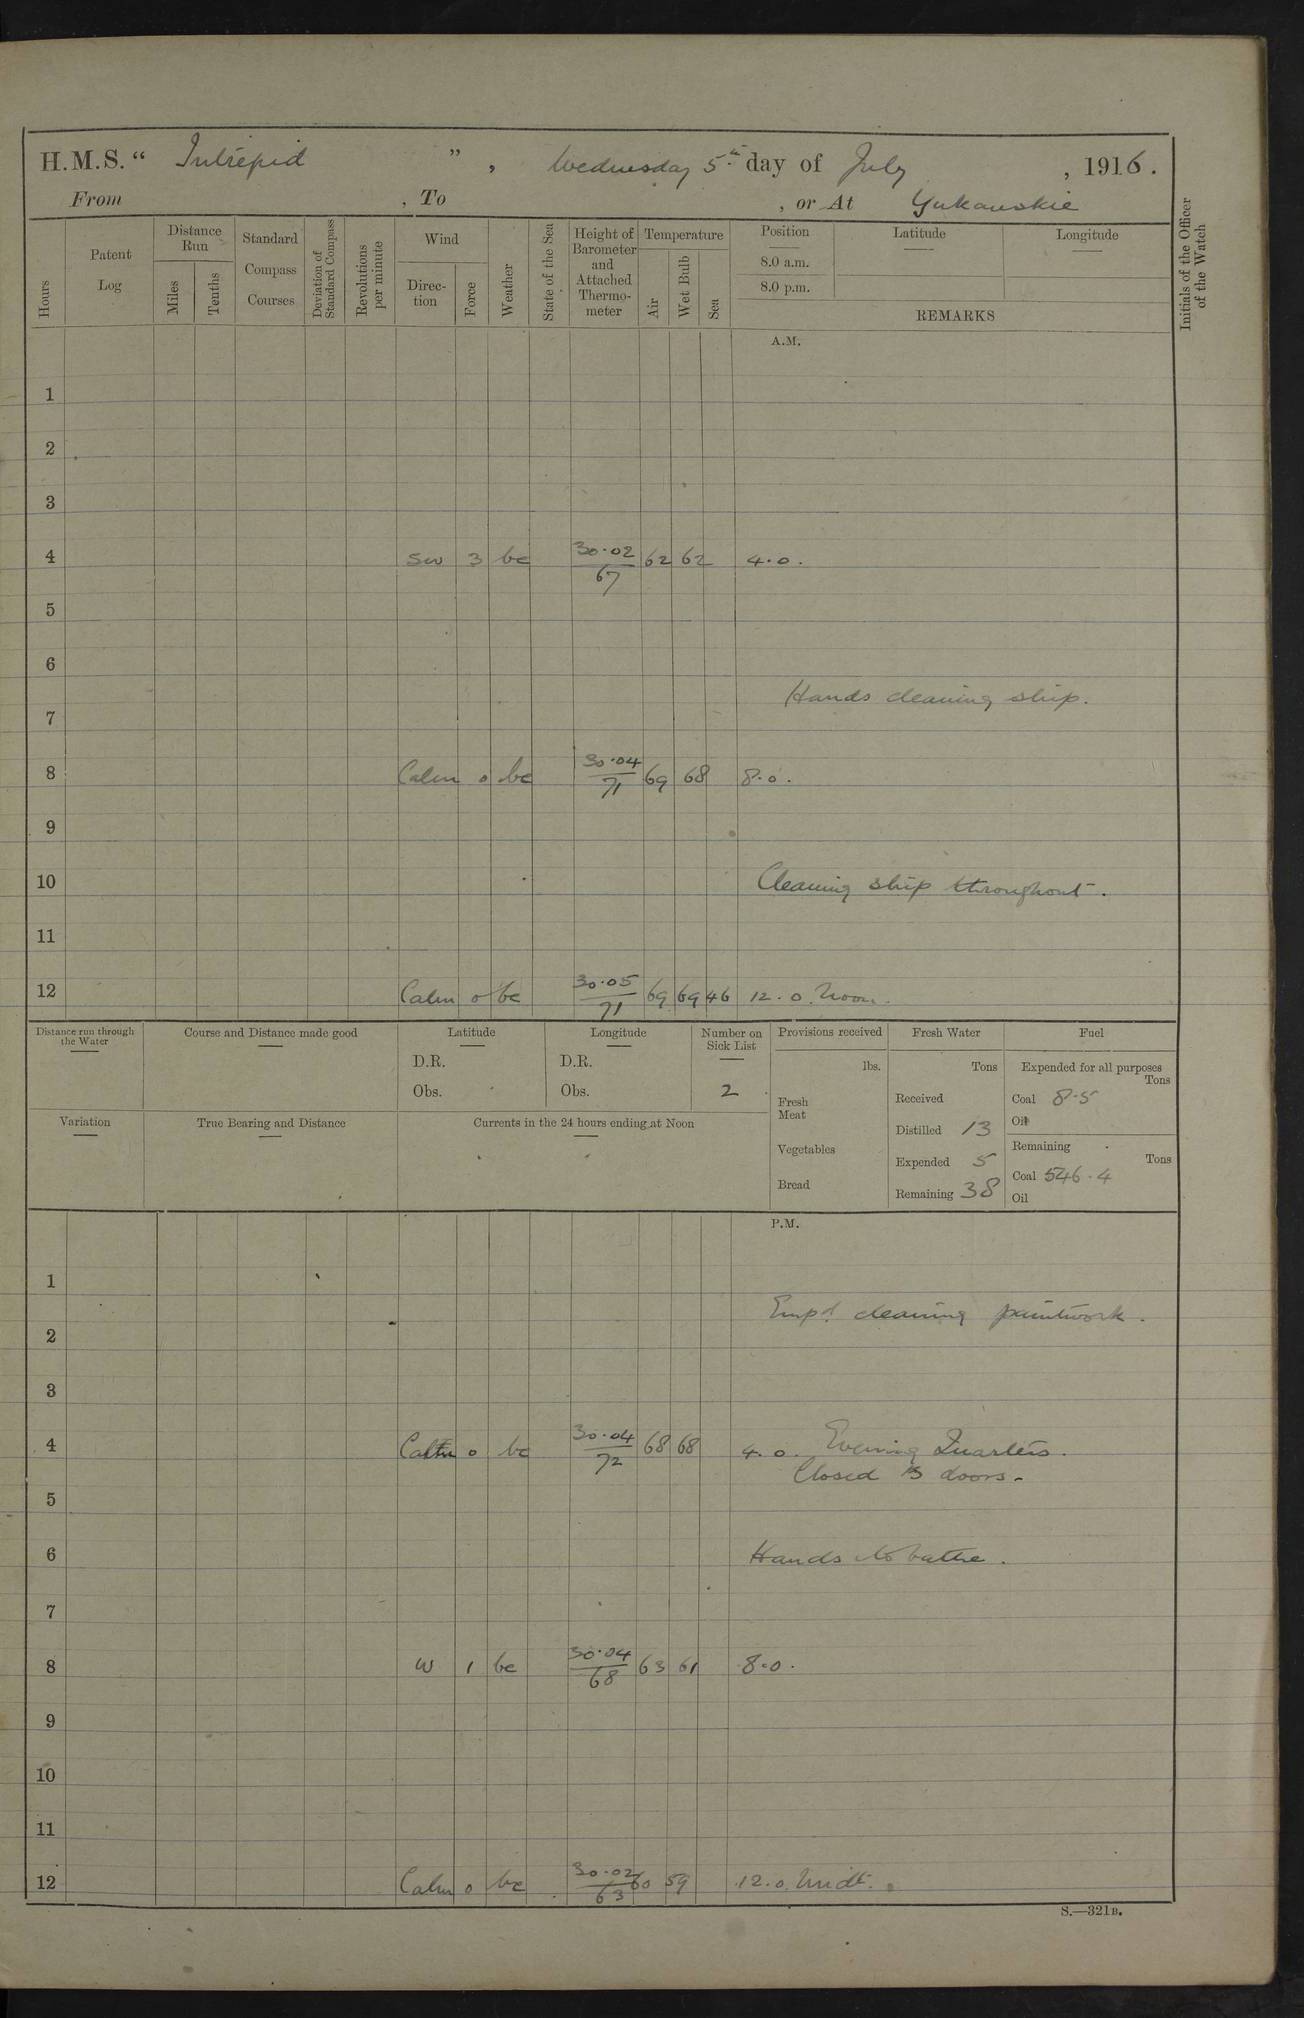 H.M.S. “ Intrepid ” , Wednesday 5th day of July , 1916 .
From , To , or At Yukanskie
Hours
Patent Log
Distance Run
Miles
Tenths
Standard Compass Courses
Deviation of Standard Compass
Revolutions per minute
Wind
Direction
Force
Weather
State of the Sea
Height of Barometer and Attached Thermometer
Temperature
Air
Wet Bulb
Sea
Position
8.0 a.m.
8.0 p.m.
Latitude
Longitude
REMARKS
Initials of the Officer of the Watch
A.M.
1
2
3
4 SW 3 bc 30.02/67 62 62 4.0.
5
6
Hands cleaning ship.
7
8 Calm 0 bc 30.04/71 69 68 8.0.
9
10 Cleaning ship throughout.
11
12 Calm 0 bc 30.05/71 69 69 46 12.0. Noon.
Distance run through the Water
Course and Distance made good
Latitude
D.R.
Obs.
Longitude
D.R.
Obs.
Number on Sick List
2
Provisions received
lbs.
Fresh Meat
Vegetables
Bread
Fresh Water
Tons
Received
Distilled 13
Expended 5
Remaining 38
Fuel
Expended for all purposes
Tons
Coal 8.5
Oil
Remaining
Tons
Coal 546.4
Oil
Variation
True Bearing and Distance
Currents in the 24 hours ending at Noon
P.M.
1
Empd cleaning paintwork.
2
3
4 Calm 0 bc 30.04/72 68 68 4.0. Evening Quarters.
Closed doors.
5
6 Hands to bathe.
7
8 W 1 bc 30.04/68 63 61 8.0.
9
10
11
12 Calm 0 bc 30.02/63 60 59 12.0. Midt.
S.—321B.